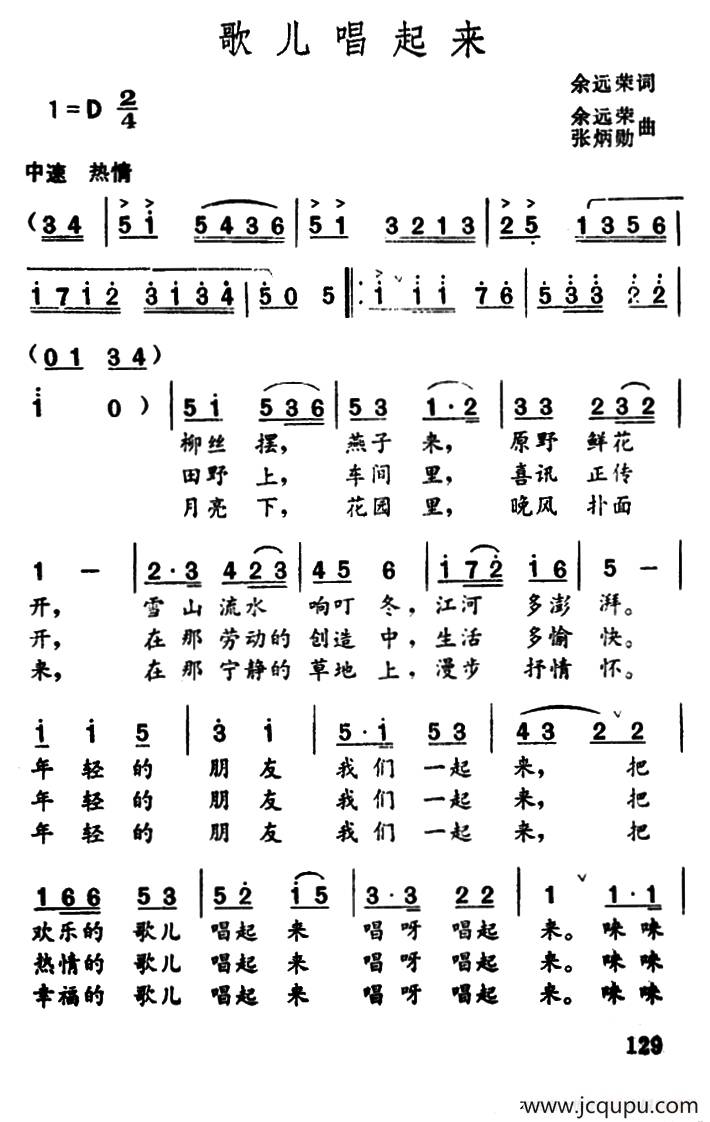 歌儿唱起来
余远荣词
1=D 2/4
余远荣
张炳勋 曲
中速 热情
(3 4 | 5 i 5 4 3 6 | 5 1 3 2 1 3 | 2 5 1 3 5 6 |
i 7 i 2 3 i 3 4 | 5 0 5 ‖: i i i 7 6 | 5 3 3 2 2 |
(0 1 3 4)
i 0 ) | 5 i 5 3 6 | 5 3 1 · 2 | 3 3 2 3 2 |
柳丝摆, 燕子来, 原野鲜花
田野上, 车间里, 喜讯正传
月亮下, 花园里, 晚风扑面
1 – | 2 · 3 4 2 3 | 4 5 6 | i 7 2 i 6 | 5 – |
开, 雪山流水 响叮冬, 江河多澎湃。
开, 在那劳动的创造中, 生活多愉快。
来, 在那宁静的草地上, 漫步抒情怀。
i i 5 | 3 i | 5 · i 5 3 | 4 3 2 2 |
年轻的朋友我们一起来, 把
年轻的朋友我们一起来, 把
年轻的朋友我们一起来, 把
1 6 6 5 3 | 5 2 i 5 | 3 · 3 2 2 | 1 1 · 1 |
欢乐的歌儿唱起来唱呀唱起来。咪咪
热情的歌儿唱起来唱呀唱起来。咪咪
幸福的歌儿唱起来唱呀唱起来。咪咪
129
www.jcqupu.com